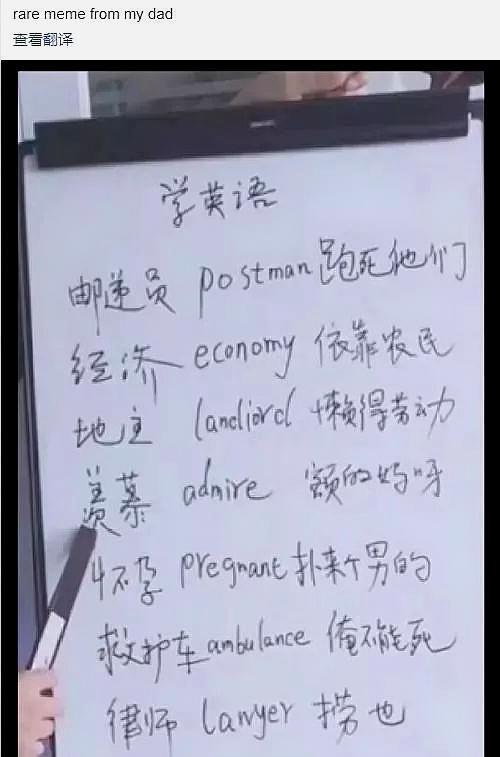 rare meme from my dad
查看翻译
学英语
邮递员 postman 跑死他们
经济 economy 依靠农民
地主 landlord 懒得劳动
羡慕 admire 额的妈呀
怀孕 pregnant 扑来个男的
救护车 ambulance 俺不能死
律师 lawyer 捞也